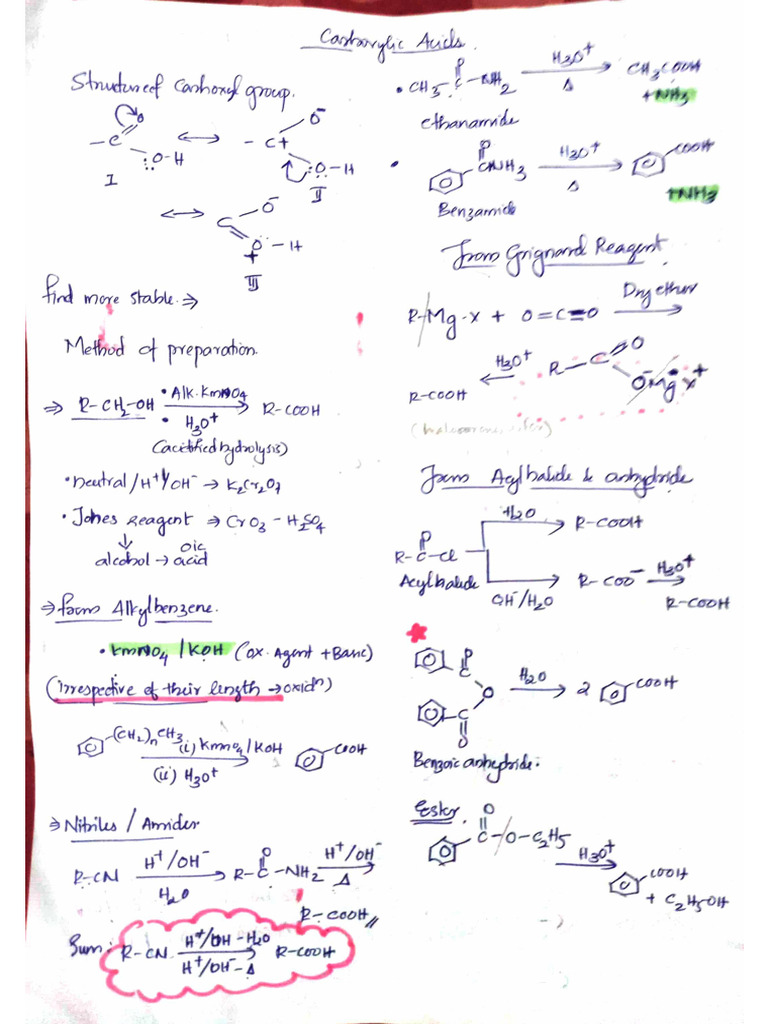 Carboxylic Acids.
Structure of Carboxyl group.
O
- C
O - H
I
↔
O⁻
- C+
:O - H
II
↔
O⁻
C
O - H
+
III
find more stable. ⇒
Method of preparation.
⇒ R-CH2-OH
• Alk. KmNO4
• H3O+
R-COOH
(acidified hydrolysis)
• neutral/H+/OH⁻ → K2Cr2O7
• Johes Reagent ⇒ CrO3 - H2SO4
↓
oic
alcohol → acid
⇒ from Alkylbenzene.
• KmNO4 / KOH (ox. Agent + Basic)
(irrespective of their length → oxidn)
(CH2)n CH3
(i) KmnO4/KOH
(ii) H3O+
COOH
⇒ Nitriles / Amides
R-CN
H+/OH⁻
H2O
O
R-C-NH2
H+/OH⁻
Δ
R-COOH //
Sum:
R-CN
H+/OH - H2O
H+/OH⁻ - Δ
R-COOH
O
• CH3-C-NH2
H3O+
Δ
CH3COOH
+ NH3
ethanamide
• O
CNH3
H3O+
Δ
COOH
+NH3
Benzamide
from Grignard Reagent
R-Mg-x + O=C=O
Dry ether
O
R-C
O⁻Mg x+
H3O+
R-COOH
from Acylhalide & anhydride
O
R-C-Cl
Acylhalide
H2O
R-COOH
OH⁻/H2O
R-COO⁻
H3O+
R-COOH
O
C
O
C
O
H2O
2
COOH
Benzoic anhydride:
Ester.
O
C-O-C2H5
H3O+
COOH
+ C2H5-OH